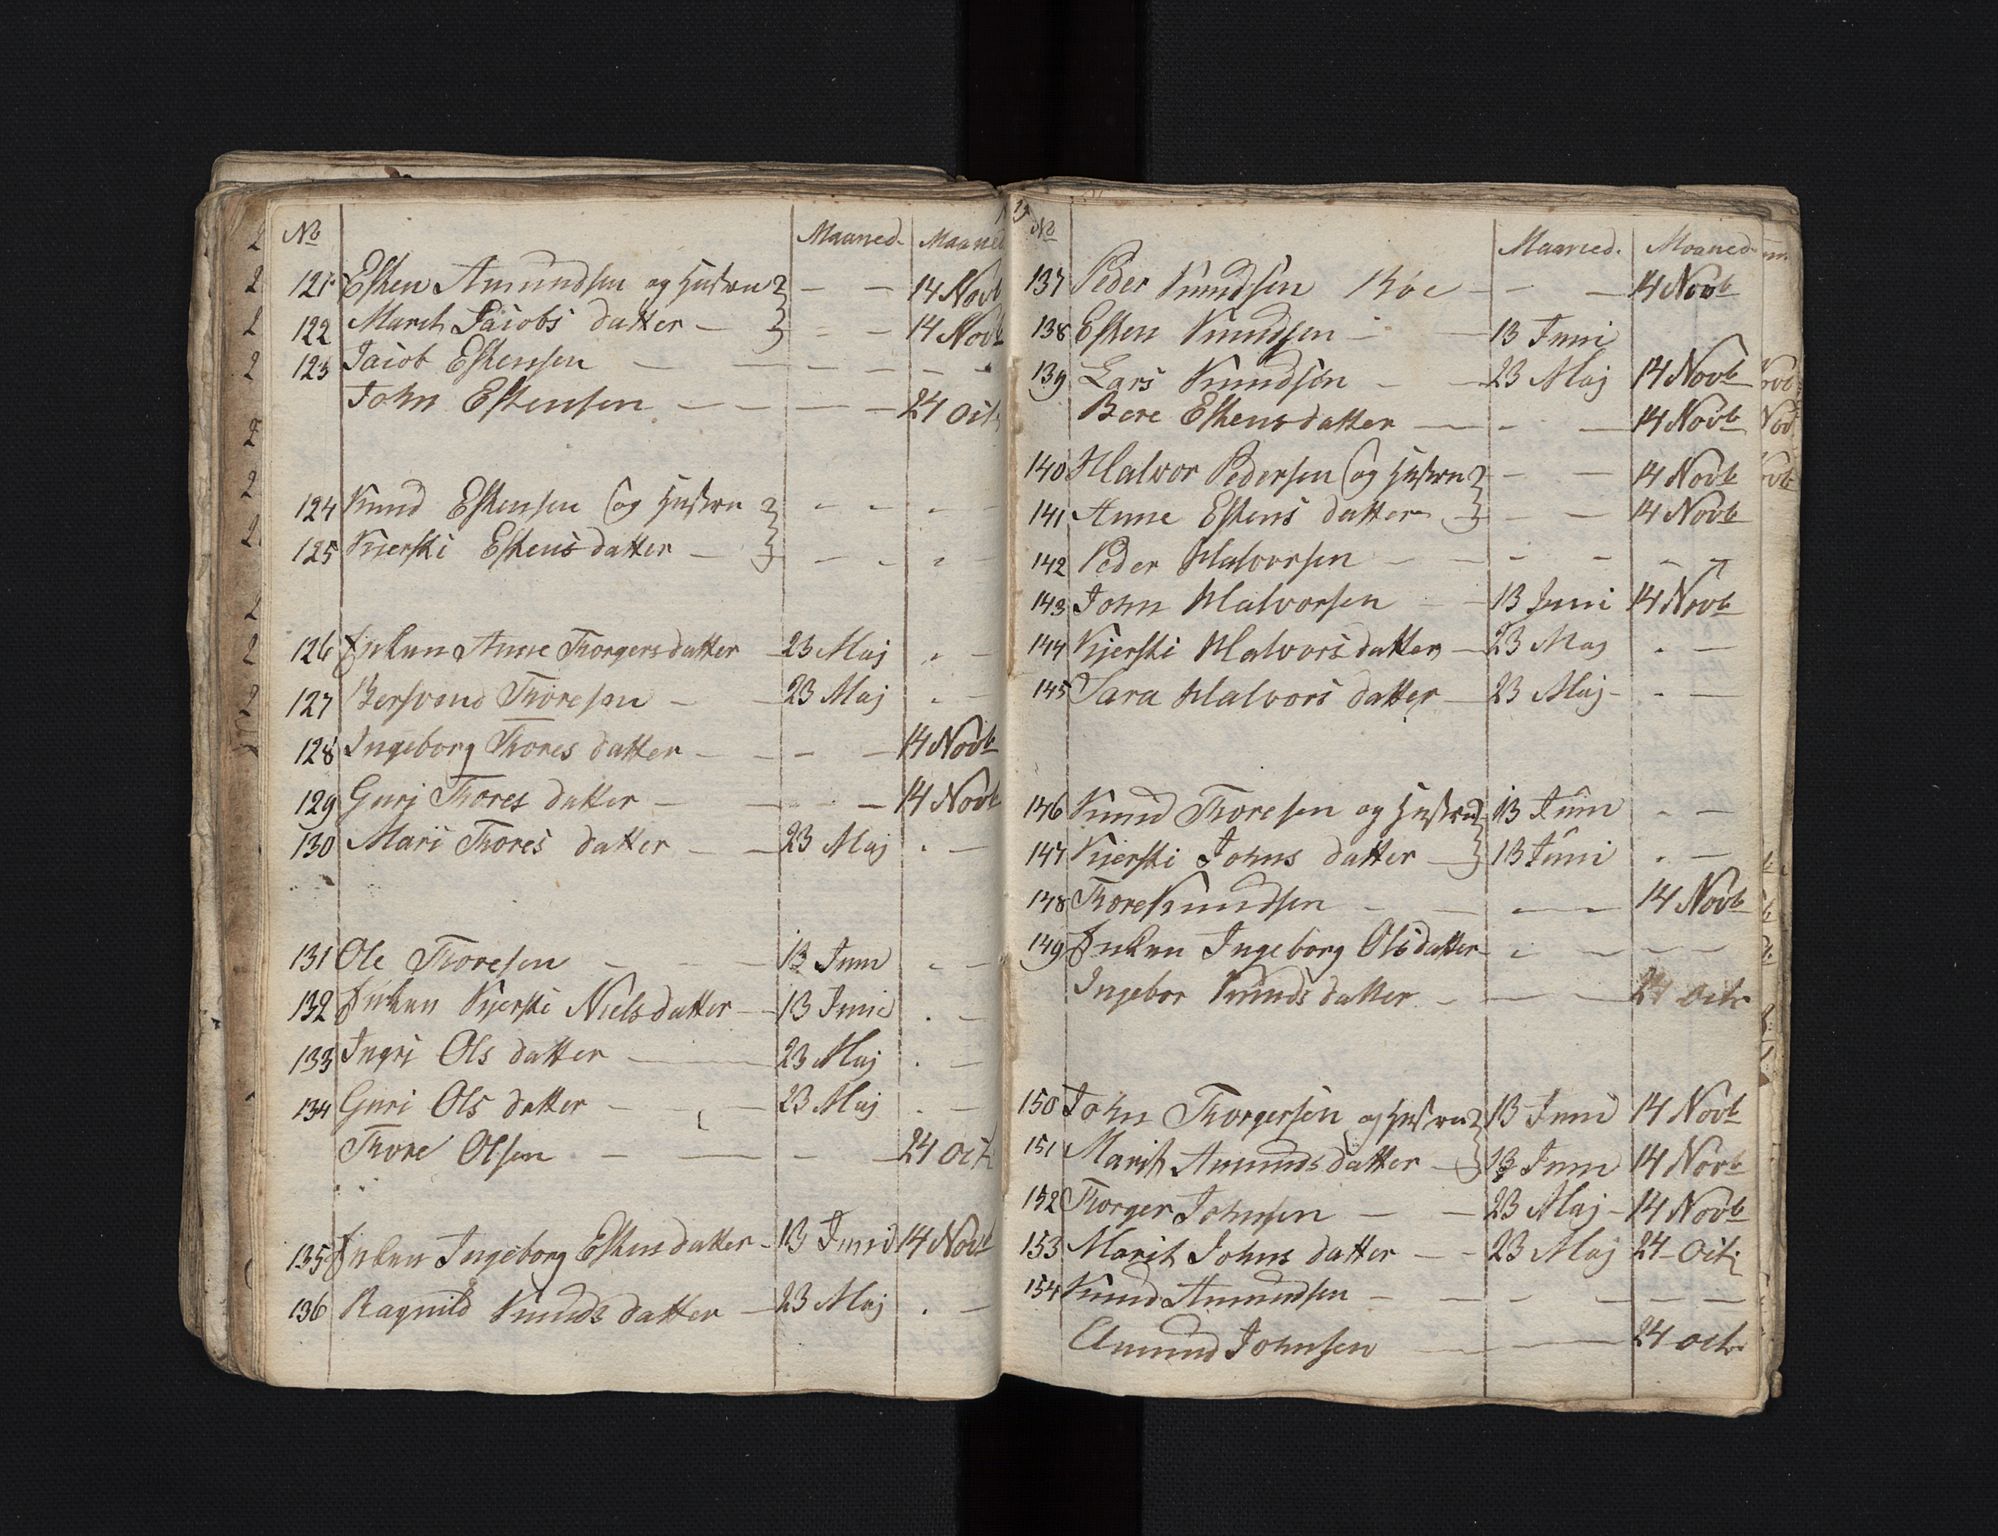 No Maaned. Maaned
121 Esten Amundsen og Hustru - - 14 Novb
122 Marit Jacobs datter - - - 14 Novb
123 Jacob Estensen - - - - - -
John Estensen - - - - - 24 Octr
124 Knud Estensen (og Hustru - - - -
125 Kjersti Estens datter - - - - -
126 Enken Anne Thorgersdatter - 23 Maj - -
127 Bersvend Thoresen - - 23 Maj -
128 Ingeborg Thores datter - - - 14 Novb
129 Guri Thores datter - - - - 14 Novb
130 Mari Thores datter - - 23 Maj - -
131 Ole Thoresen - - - 13 Juni - -
132 Enken Kjersti Nielsdatter - 13 Juni - -
133 Ingri Ols datter - - 23 Maj - -
134 Guri Ols datter - - 23 Maj - -
Thore Olsen - - - - 24 Oct
135 Enken Ingeborg Estensdatter - 13 Juni 14 Novb
136 Ragnild Knuds datter - 23 Maj - -
No Maaned. Maaned
137 Peder Knudsen Röe - - 14 Novb
138 Esten Knudsen - - 13 Juni
139 Lars Knudsen - - 23 Maj 14 Novb
Bere Estensdatter - - - 14 Novb
140 Halvor Pedersen (og Hustru - - 14 Novb
141 Anne Estens datter - - - 14 Novb
142 Peder Halvorsen - - - - - -
143 John Halvorsen - - 13 Juni 14 Novb
144 Kjersti Halvorsdatter - 23 Maj - -
145 Sara Halvors datter - 23 Maj - - -
146 Knud Thoresen og Hustru 13 Juni - -
147 Kjersti Johns datter - 13 Juni - -
148 Thore Knudsen - - - - 14 Novb
149 Enken Ingeborg Olsdatter - - - -
Ingebor Knuds datter - - - 24 Octr
150 John Thorgersen og Hustru 13 Juni 14 Novb
151 Marit Amunds datter - 13 Juni 14 Novb
152 Thorger Johnsen - - 23 Maj - 14 Novb
153 Marit Johns datter - - 23 Maj 24 - Octr
154 Knud Amundsen - - - - - - -
Amund Johnsen - - - 24 - Octr